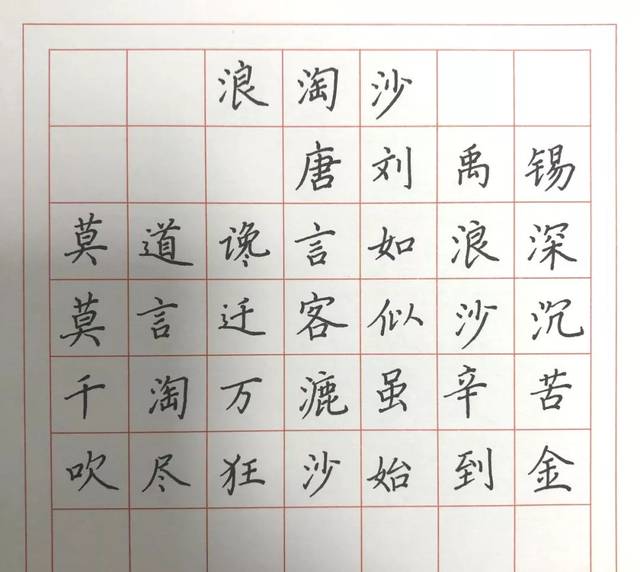 浪淘沙
唐刘禹锡
莫道谗言如浪深
莫言迁客似沙沉
千淘万漉虽辛苦
吹尽狂沙始到金